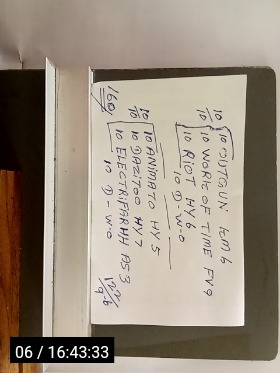 10 OUTGUN HM6
10/10 10 WORK OF TIME FV9
10 RIOT HY6
10 D - W-O
10/10 10 ANIMATO HY5
10 DAZITOO HY7
10 ELECTRIFARHH AS3
10 D - W-O
160/
06 / 16:43:33